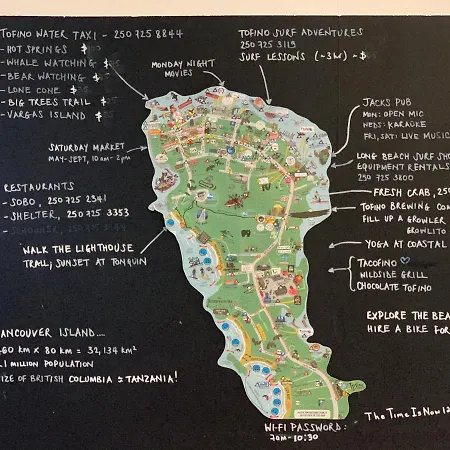 TOFINO WATER TAXI - 250 725 8844
- HOT SPRINGS $
- WHALE WATCHING $
- BEAR WATCHING $
- LONE CONE $
- BIG TREES TRAIL $
- VARGAS ISLAND $
MONDAY NIGHT
MOVIES
TOFINO SURF ADVENTURES
250 725 3113
SURF LESSONS (~3hr) - $
JACKS PUB
MON: OPEN MIC
WEDS: KARAOKE
FRI, SAT: LIVE MUSIC
SATURDAY MARKET
MAY-SEPT, 10am-2pm
LONG BEACH SURF SHO
EQUIPMENT RENTALS
250 725 3800
RESTAURANTS
- SOBO, 250 725 2341
- SHELTER, 250 725 3353
FRESH CRAB, 250
TOFINO BREWING COM
FILL UP A GROWLER
GROWLITO
WALK THE LIGHTHOUSE
TRAIL, SUNSET AT TONQUIN
YOGA AT COASTAL
TACOFINO
WILDSIDE GRILL
CHOCOLATE TOFINO
EXPLORE THE BEA
HIRE A BIKE FOR
VANCOUVER ISLAND....
460 km x 80 km = 32,134 km²
.1 MILLION POPULATION
SIZE OF BRITISH COLUMBIA = TANZANIA!
WI-FI PASSWORD:
7AM-10:30
The Time Is Now 12